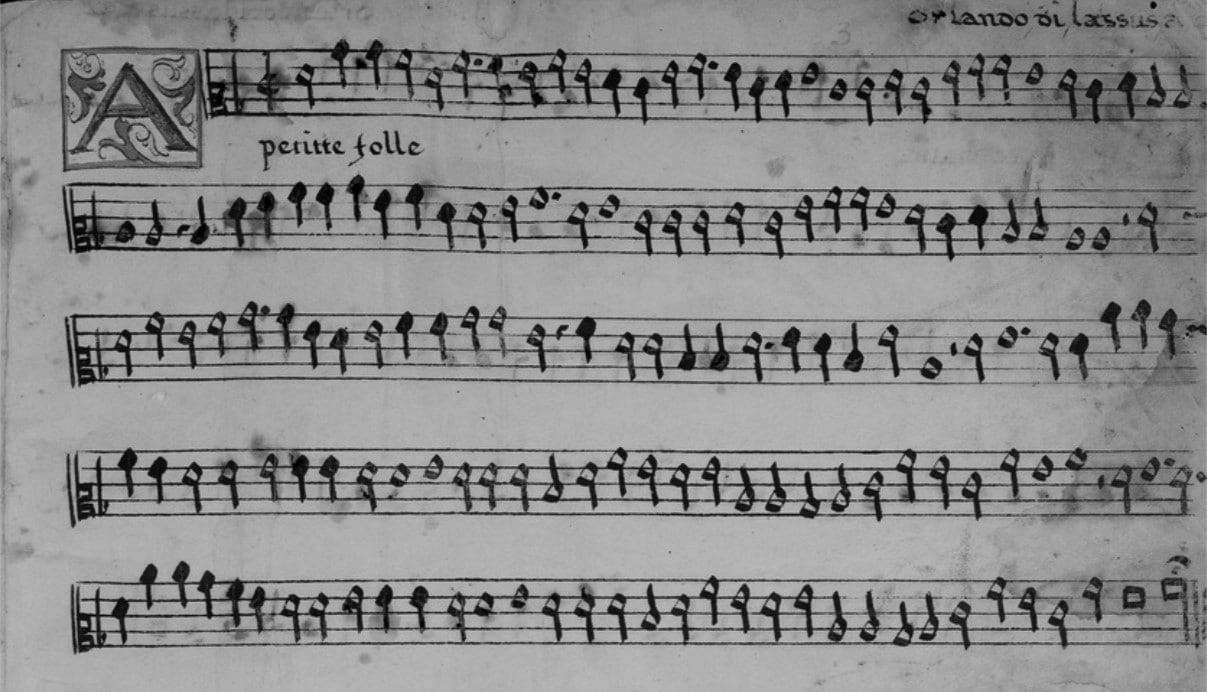 orlando di lassus a
A
petitte folle